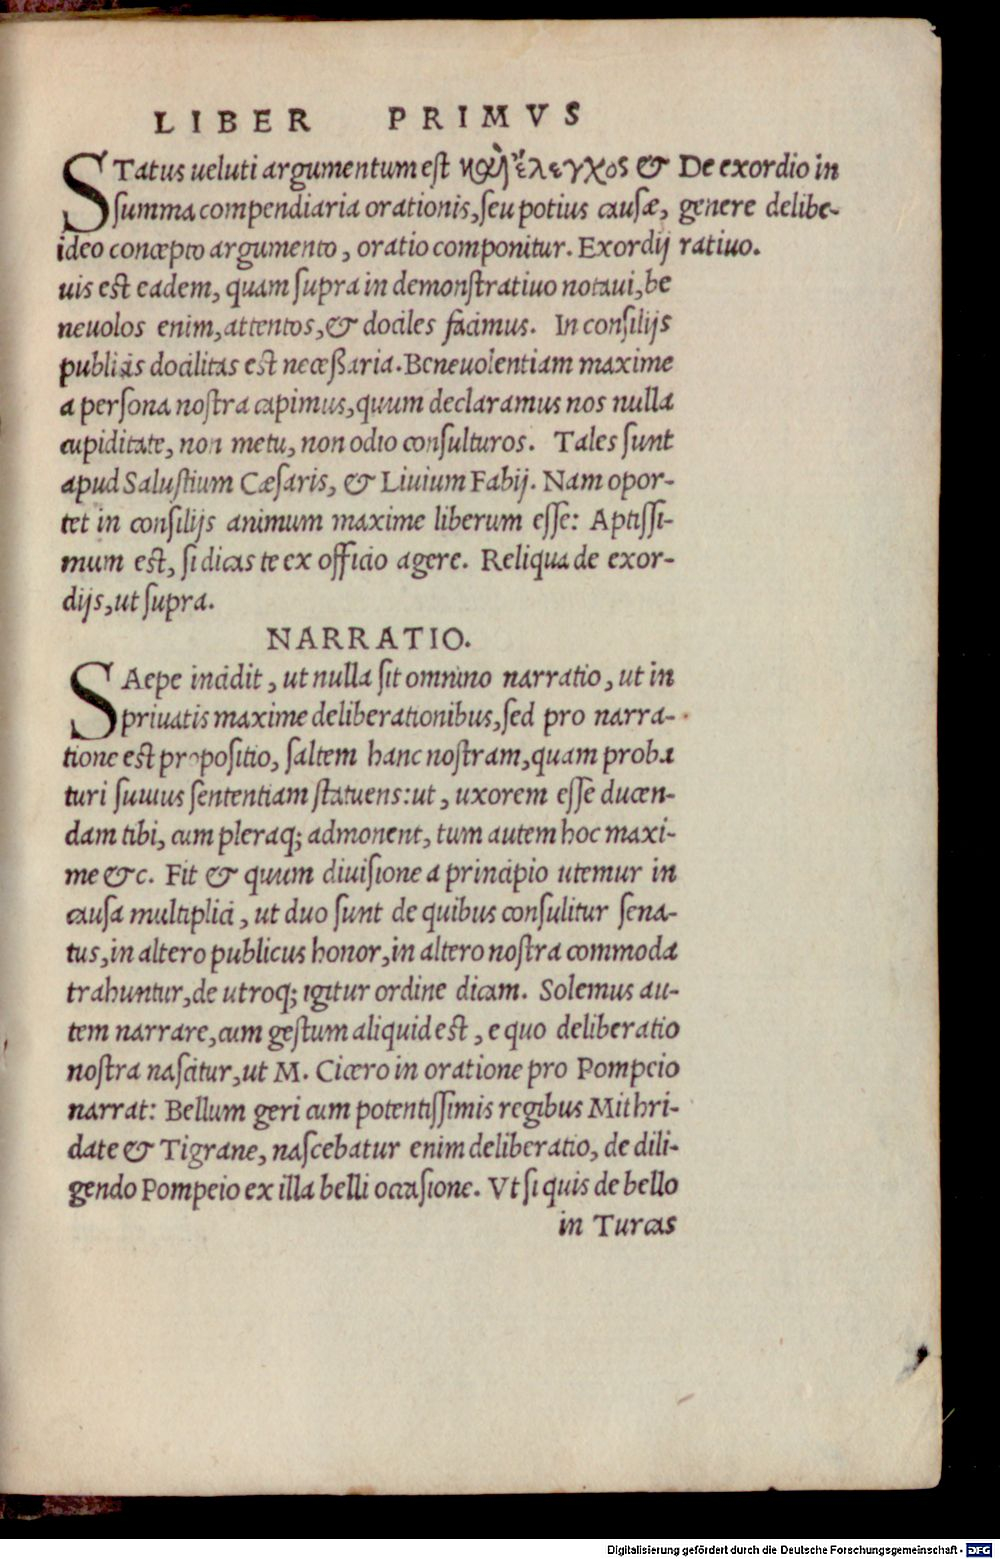 LIBER PRIMVS
STatus ueluti argumentum est καὶ ἔλεγχος &
summa compendiaria orationis, seu potius causæ,
ideo concepto argumento, oratio componitur. Exordij
De exordio in
genere delibe-
ratiuo.
uis est eadem, quam supra in demonstratiuo notaui, be
neuolos enim, attentos, & dociles facimus. In consilijs
publicis docilitas est necessaria. Beneuolentiam maxime
a persona nostra capimus, quum declaramus nos nulla
cupiditate, non metu, non odio consulturos. Tales sunt
apud Salustium Cæsaris, & Liuium Fabij. Nam opor-
tet in consilijs animum maxime liberum esse: Aptissi-
mum est, si dicas te ex officio agere. Reliqua de exor-
dijs, ut supra.
NARRATIO.
SAepe incidit, ut nulla sit omnino narratio, ut in
priuatis maxime deliberationibus, sed pro narra-
tione est propositio, saltem hanc nostram, quam proba
turi sumus sententiam statuens: ut, uxorem esse ducen-
dam tibi, cum pleraq; admonent, tum autem hoc maxi-
me &c. Fit & quum diuisione a principio utemur in
causa multiplici, ut duo sunt de quibus consulitur sena-
tus, in altero publicus honor, in altero nostra commoda
trahuntur, de utroq; igitur ordine dicam. Solemus au-
tem narrare, cum gestum aliquid est, e quo deliberatio
nostra nascitur, ut M. Cicero in oratione pro Pompeio
narrat: Bellum geri cum potentissimis regibus Mithri-
date & Tigrane, nascebatur enim deliberatio, de dili-
gendo Pompeio ex illa belli occasione. Vt si quis de bello
in Turcas
Digitalisierung gefördert durch die Deutsche Forschungsgemeinschaft - DFG